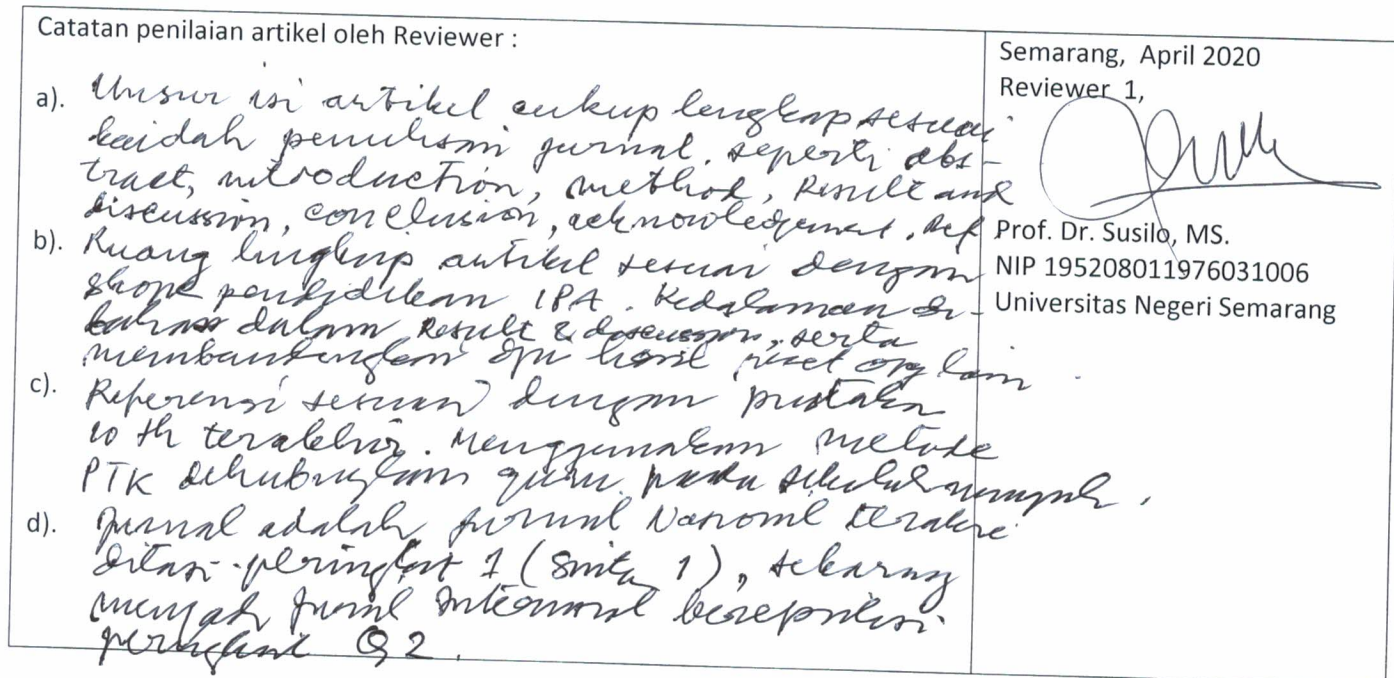 Catatan penilaian artikel oleh Reviewer :
a). Unsur isi artikel cukup lengkap sesuai
kaidah penulisan jurnal, seperti abs-
tract, introduction, method, Result and
discussion, conclusion, acknowledgement, Ref
b). Ruang lingkup artikel sesuai dengan
skope pendidikan IPA. Kedalaman di-
bahas dalam Result & discussion, serta
membandingkan dgn hasil riset org lain.
c). Referensi sesuai dengan pustaka
10 th terakhir. Menggunakan metode
PTK dihubungkan guru pada sekolah
d). Jurnal adalah jurnal Nasional terakre
ditasi peringkat 1 (Sinta 1), sekarang
menjadi jurnal internasional bereputasi
peringkat Q2.
Semarang, April 2020
Reviewer 1,
Prof. Dr. Susilo, MS.
NIP 195208011976031006
Universitas Negeri Semarang